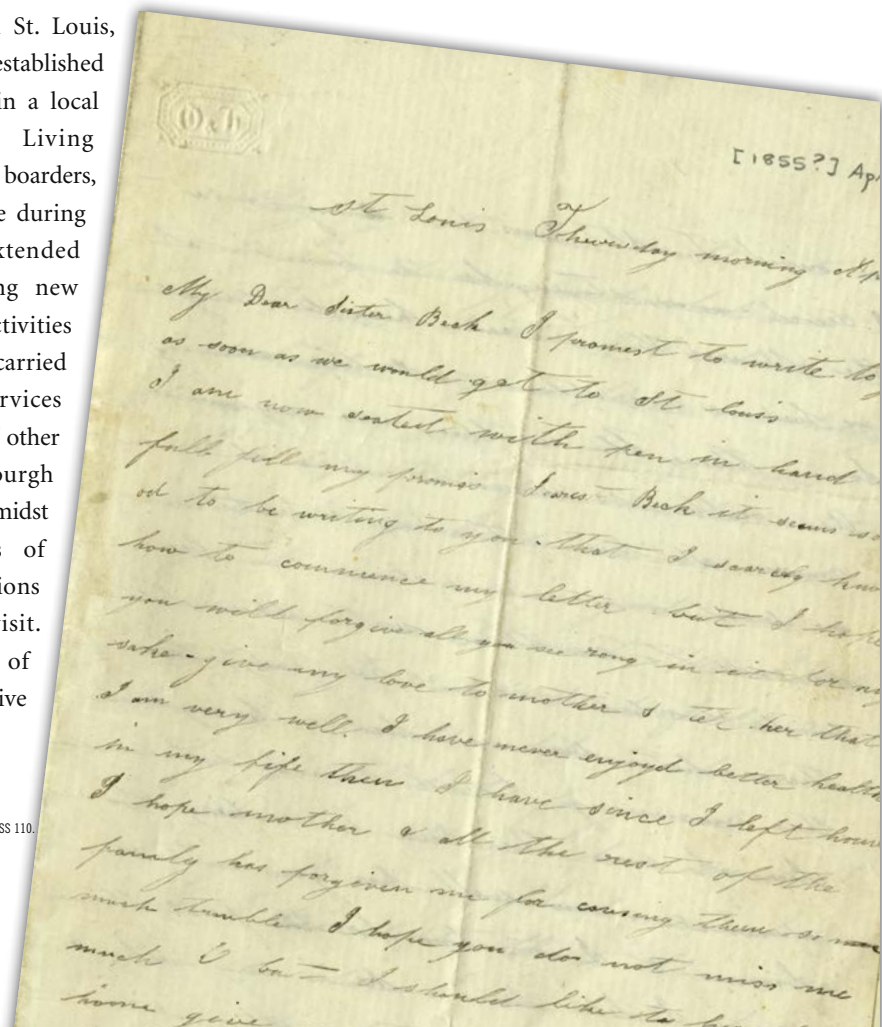 St. Louis,
established
in a local
Living
boarders,
e during
xtended
ng new
ctivities
carried
rvices
other
ourgh
midst
s of
ions
visit.
of
ive
SS 110.
[1855?] Ap
St Louis Thursday morning Ap
My Dear Sister Beck I promest to write to
as soon as we would get to St Louis
I am now seated with pen in hand
full fill my promis Dearest Beck it seems so
od to be writing to you that I scarcly know
how to commence my letter but I hope
you will forgive all you see rong in it for my
sake - give my love to mother & tel her that
I am very well. I have never enjoyd better health
in my life then I have since I left hom
I hope mother & all the rest of the
family has forgiven me for causing them so
much trouble I hope you do not miss me
much but I should like to
home give